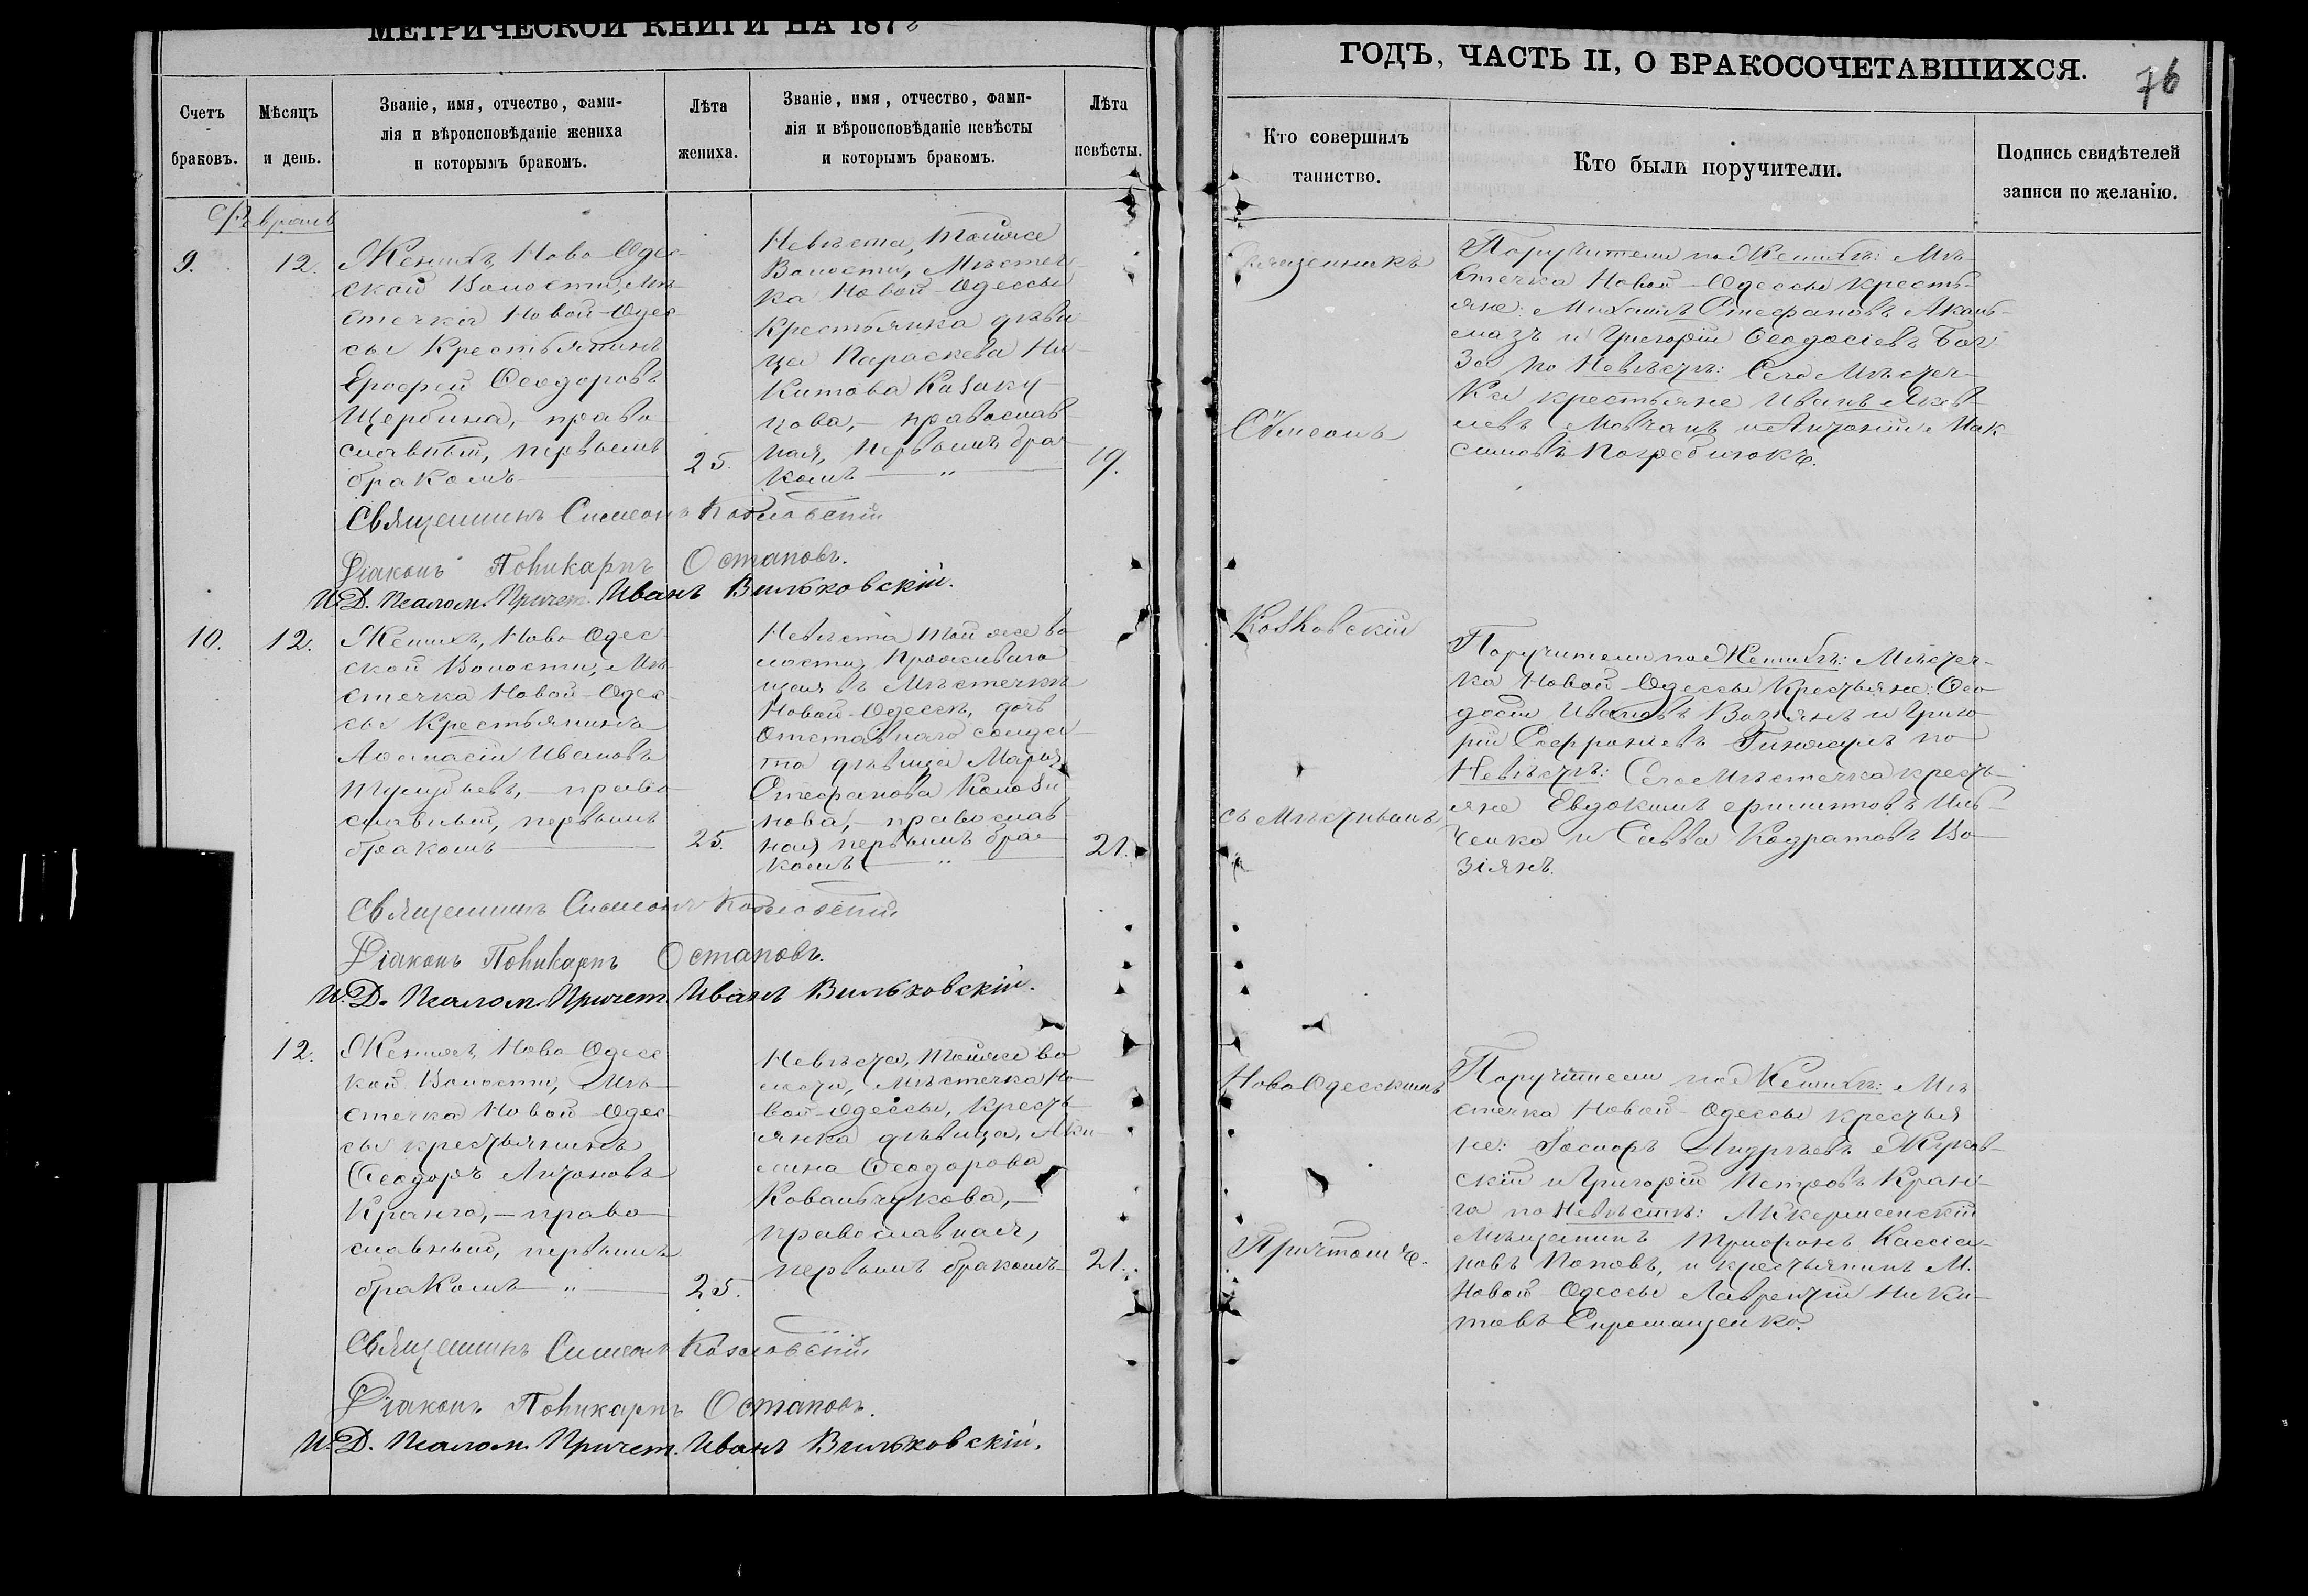 МЕТРИЧЕСКОЙ КНИГИ НА 187
ГОДЪ, ЧАСТЬ II, О БРАКОСОЧЕТАВШИХСЯ.
76
Счетъ
браковъ.
Мѣсяцъ
и день.
Званіе, имя, отчество, фами-
лія и вѣроисповѣданіе жениха
и которымъ бракомъ.
Лѣта
жениха.
Званіе, имя, отчество, фами-
лія и вѣроисповѣданіе невѣсты
и которымъ бракомъ.
Лѣта
невѣсты.
Кто совершилъ
таинство.
Кто были поручители.
Подпись свидѣтелей
записи по желанію.
9.
12.
Женихъ, Ново-Одес-
ской Волости, Мѣ-
стечка Новой-Одес-
сы Крестьянинъ
Ерофей Ѳеодоровъ
Щербина, право-
славный, первымъ
бракомъ
25.
Невѣста, тойже
Волости, Мѣстеч-
ка Новой-Одессы
Крестьянка дѣви-
ца Параскева Ни-
китова
цова, - православ-
ная, первымъ бра-
комъ - " -
19.
Священникъ
Симеонъ
Козловскій
съ Мѣстнымъ
Ново-Одесскимъ
Причтомъ.
Поручители по Женихѣ: Мѣ-
стечка Новой-Одессы кресть-
яне: Михаилъ Стефановъ
и Григорій Ѳеодосіевъ
по Невѣстѣ: Сего Мѣстеч-
ка крестьяне Иванъ
Мовчанъ и Антоній Мак-
симовъ Погребнюкъ.
Священникъ Симеонъ Козловскій
Діаконъ Поликарпъ Остаповъ.
И. Д. Псалом. Причет. Иванъ Вильховскій.
10.
12.
Женихъ, Ново-Одес-
ской Волости, Мѣ-
стечка Новой-Одес-
сы Крестьянинъ
Аѳанасій Ивановъ
право-
славный, первымъ
бракомъ
25.
Невѣста той же во-
лости, Проживаю-
щая въ Мѣстечкѣ
Новой-Одессѣ, дочь
Отставнаго солда-
та дѣвица Марія
Стефанова
нова, - православ-
ная первымъ бра-
комъ - " -
21.
Поручители по Женихѣ: Мѣстеч-
ка Новой-Одессы Крестьяне: Ѳео-
досій Ивановъ Возіянъ и Григо-
рій Софроніевъ по
Невѣстѣ: Сего Мѣстечка кресть-
яне Евдокимъ
и Савва Кодратовъ Во-
зіянъ.
Священникъ Симеонъ Козловскій
Діаконъ Поликарпъ Остаповъ.
И. Д. Псалом. Причет. Иванъ Вильховскій.
12.
Женихъ, Ново-Одесс-
кой Волости, Мѣ-
стечка Новой-Одес-
сы крестьянинъ
Ѳеодоръ Антоновъ
Кранга, - право-
славный, первымъ
бракомъ - " -
25.
Невѣста, тойже во-
лости, Мѣстечка Но-
вой-Одессы, Кресть-
янка дѣвица, Аки-
лина Ѳеодорова
Ковальчукова, -
православная,
первымъ бракомъ
21.
Поручители по Женихѣ: Мѣ-
стечка Новой-Одессы крестья-
не: Андреевъ Жуков-
скій и Григорій Петровъ Кран-
га по Невѣстѣ: Аккерманскій
Мѣщанинъ Трифонъ Кассіа-
новъ Поповъ, и крестьянинъ М.
Новой-Одессы Лаврентій Ники-
товъ
Священникъ Симеонъ Козловскій
Діаконъ Поликарпъ Остаповъ.
И. Д. Псалом. Причет. Иванъ Вильховскій.